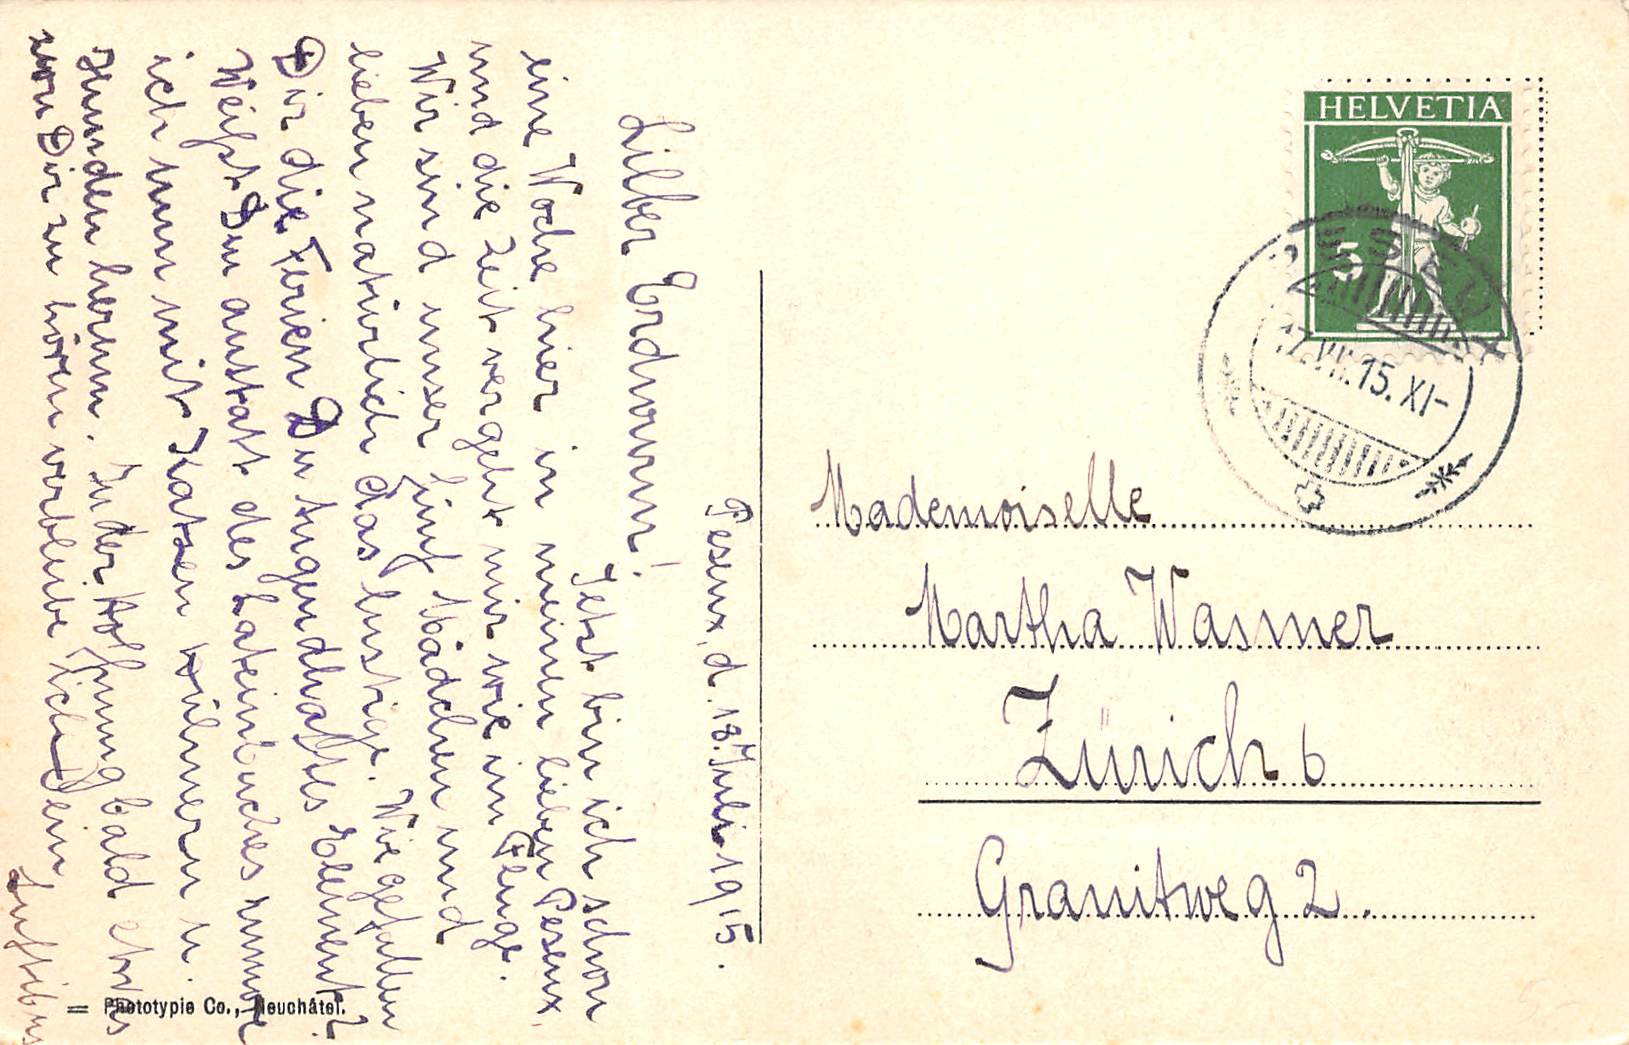 Peseux, d. 18. Juli 1915.
Lieber Erdwurm!
Jetzt bin ich schon
eine Woche hier in meinem lieben Peseux,
und die Zeit vergeht mir wie im Fluge.
Wir sind unser fünf Mädchen und
lieben natürlich das lustige. Wie gefallen
Dir die Ferien Du tugendhaftes Element?
Weißt Du anstatt des Lateinbuches
ich nun mit Katzen, u.
Hunden herum. In der Hoffnung bald etwas
von Dir zu hören verbleibe ich Dein
Luftibus
HELVETIA
5
PESEUX
VII.15.XI-
Mademoiselle
Martha Wasmer
Zürich 6
Granitweg 2.
= Phototypie Co., Neuchâtel.